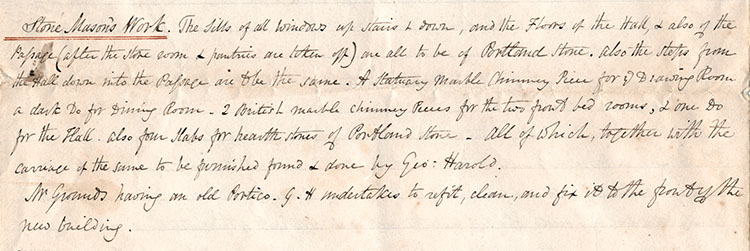 Stone Mason's Work. The Sills of all windows up Stairs & down, and the Floors of the Hall, & also of the
Passage (after the store room & pantries are token off) are all to be of Portland Stone. also the steps from
the Hall down into the Passage are to be the same. A Statuary Marble Chimney Piece for ye Drawing Room
a dark Do for Dining Room - 2 British marble chimney Pieces for the two front bed rooms, & one Do
for the Hall. also four Slabs for hearth stones of Portland Stone - all of which, together with the
carriage of the same to be furnished found & done by Geo: Harold.
Mr Grounds having an old Portico. G. H undertakes to refit, clean, and fix it to the front of the
new building.